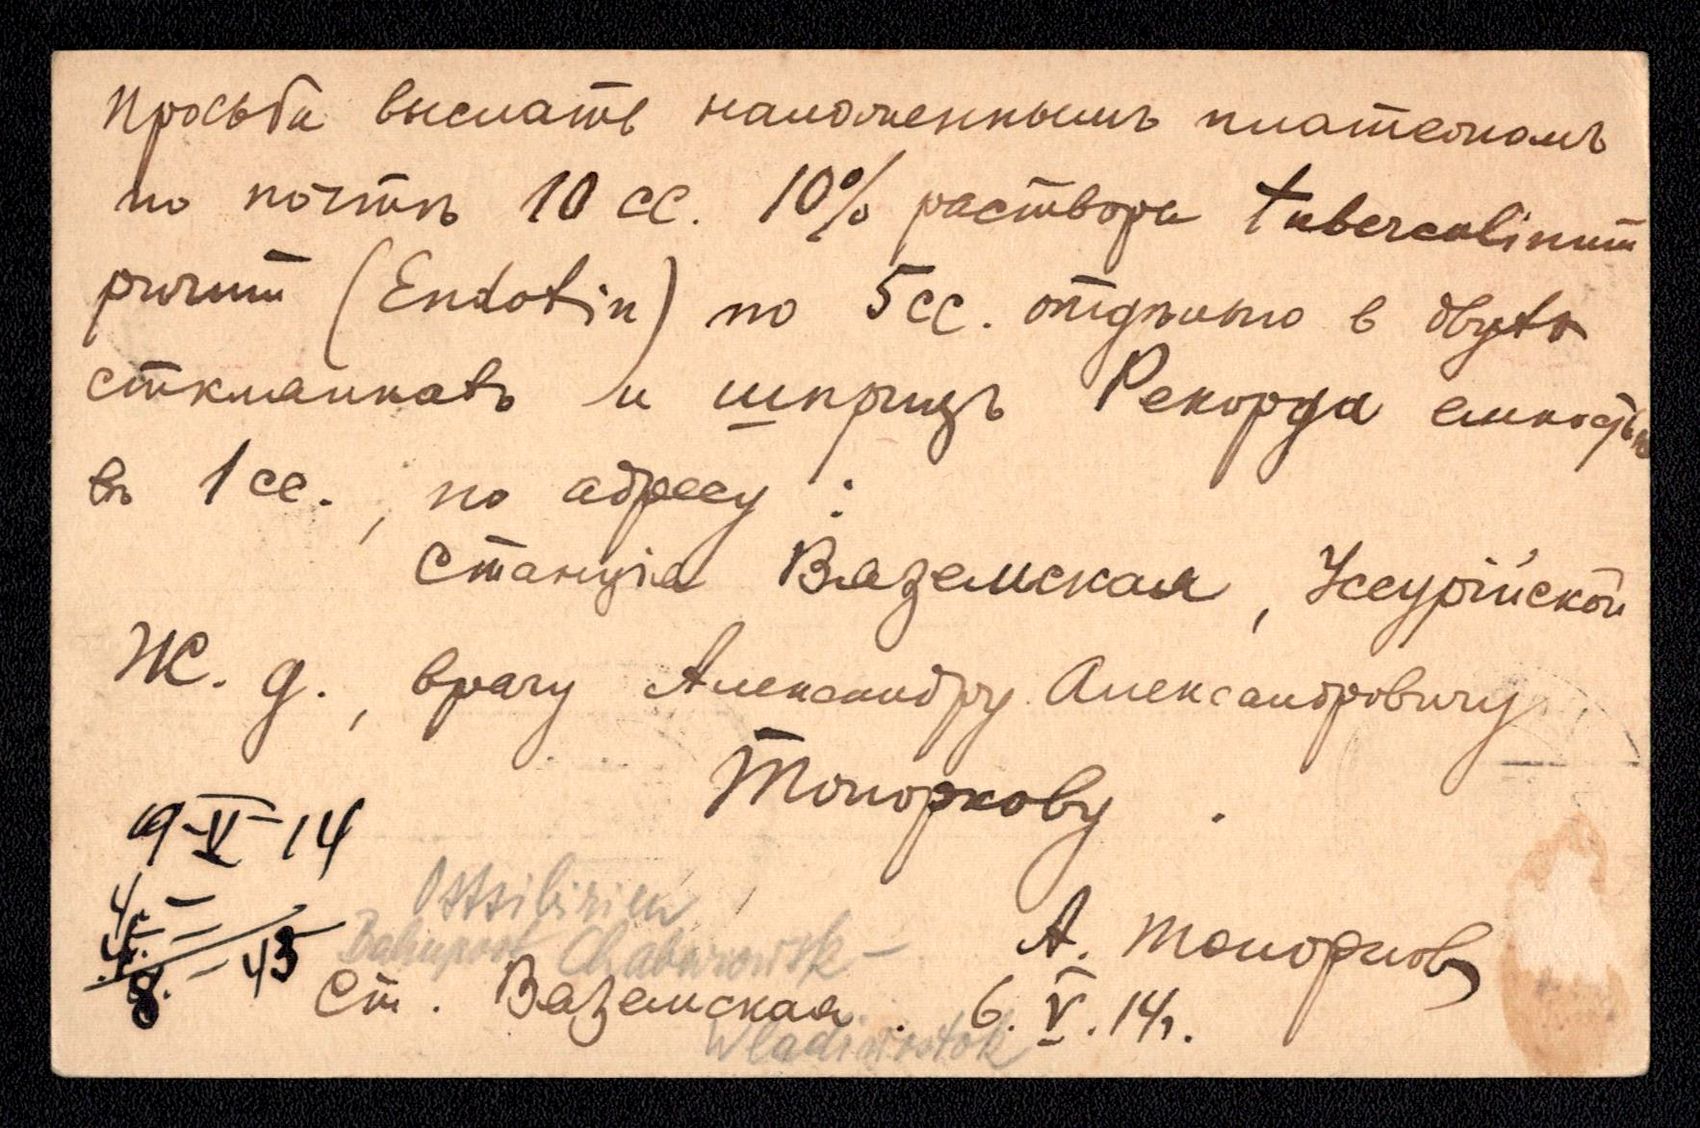 Просьба выслать наложеннымъ платежомъ
по почтѣ 10 cc. 10% раствора tuberculinum
purum (Endotin) по 5 cc. отдѣльно в двухъ
стклянкахъ и шприцъ Рекорда емкостью
въ 1 cc., по адресу:
станція Вяземская, Уссурійской
Ж. д., врачу Александру Александровичу
Топоркову.
9-V-14
4. -
8. - 45
Ostsibirien
Bahnpost Chabarowsk -
Wladiwostok
А. Топорков
Ст. Вяземская. 6. V. 14 г.